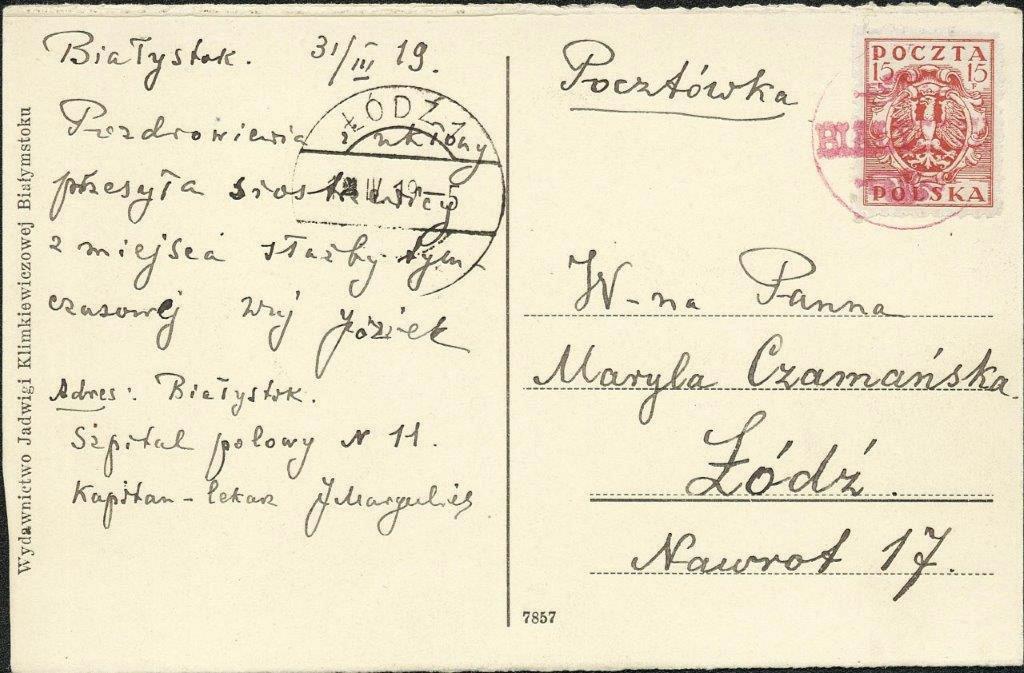 Białystok. 31/III 19.
Pozdrowienia i ukłony
przesyła siostrzenicy
z miejsca służby tym-
czasowej wuj Józiek
Adres: Białystok.
Szpital polowy N 11.
Kapitan - lekarz JMargulies
Wydawnictwo Jadwigi Klimkiewiczowej Białymstoku
ŁÓDŹ 1
IV 19 - 5
7857
Pocztówka
POCZTA
15 15
F
POLSKA
W-na Panna
Maryla Czamańska.
Łódź.
Nawrot 17.